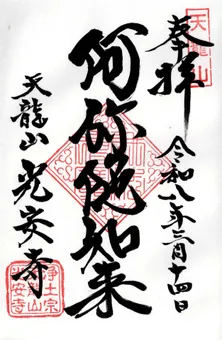 天龍山
奉拝
令和八年二月十四日
阿弥陀如来
天龍山
光安寺
浄土宗
天龍山
光安寺